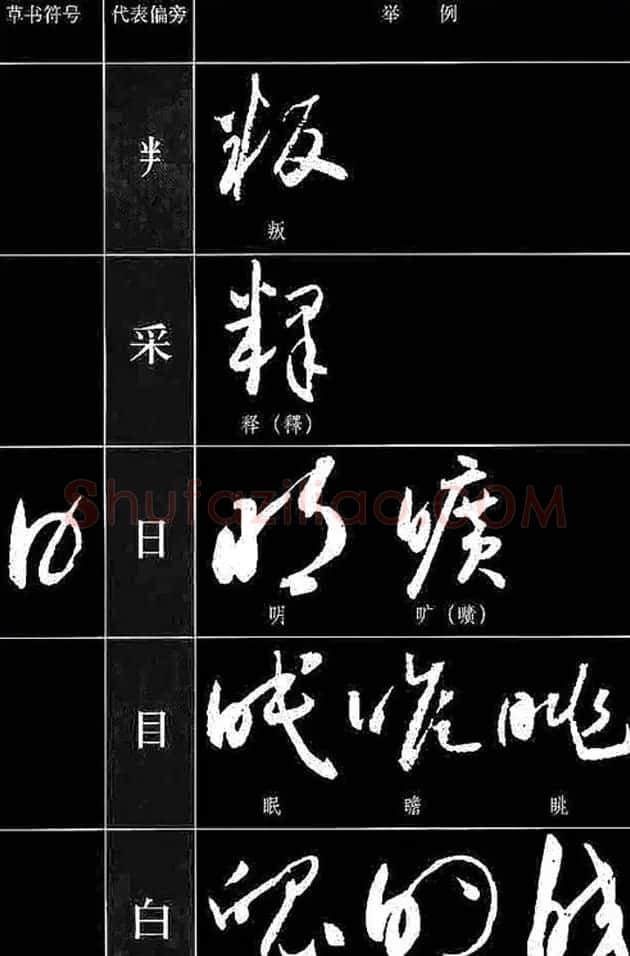 草书符号 代表偏旁 举例
叛
叛
采
释
释（釋）
日
明 旷
明 旷（曠）
目
眠 瞻 眺
眠 瞻 眺
白
的
Shufaziliao.COM